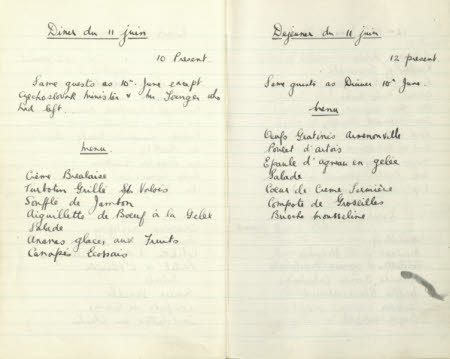 Diner du 11 juin
10 Present.
Same guests as 10th June except
Czechoslovak Minister & Mr. who
had left.
Menu
Crème Brealaise
Turbotin Grillé St. Valois
Soufflé de Jambon
Aiguillette de Boeuf à la Gelée
Salade
Ananas glacés aux Fruits
Canapés Ecossais
Dejeuner du 11 juin
12 present.
Same guests as Dinner 10th June.
Menu
Oeufs Gratinés Armenonville
Poulet d'artois
Epaule d'agneau en gelée
Salade
Coeur de Creme Fermière
Compote de Groseilles
Brioche Mousseline